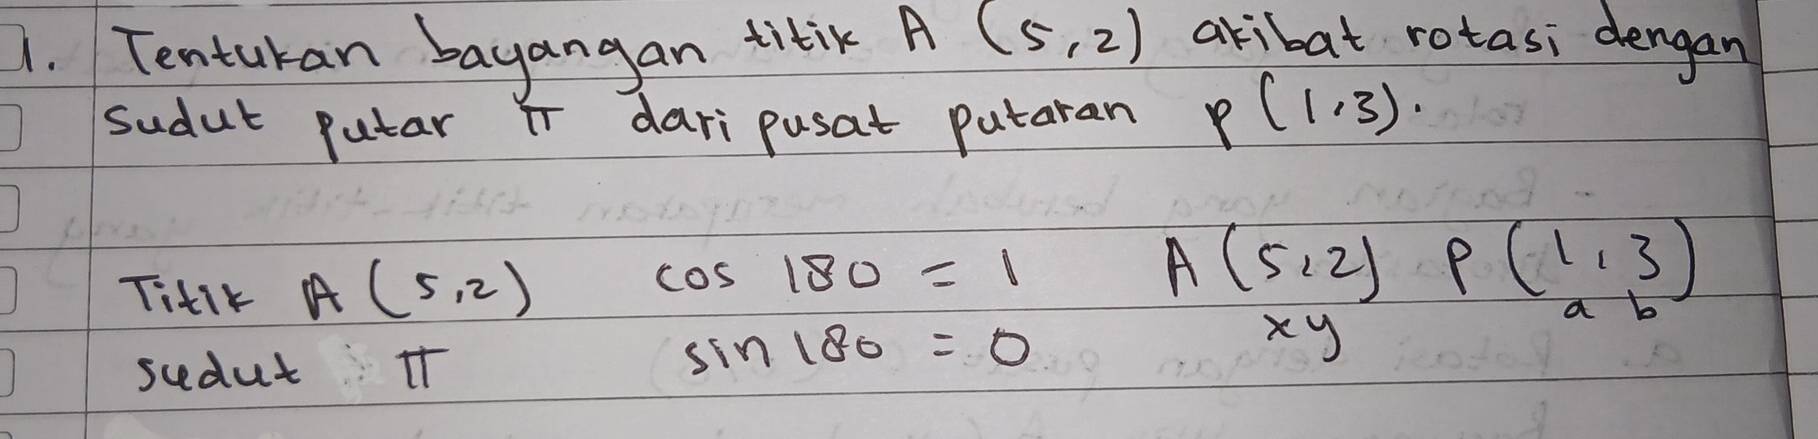 1. Tentukan bayangan titik A (5,2) akibat rotasi dengan
sudut putar π dari pusat putaran P (1,3).
Titik A (5,2) cos 180 = 1 A (5,2) P (1,3)
x y a b
sudut π sin 180 = 0